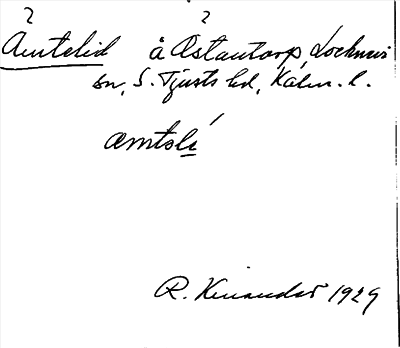 ? ?
Ämtelid å Östantorp, Locknevi
sn, S. Tjusts hd, Kalm. l.
æmtslé
R. Kinander 1929